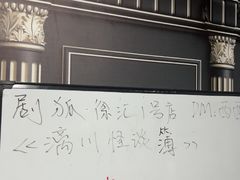 剧狐徐汇1号店 DM:西西
《漓川怪谈簿》